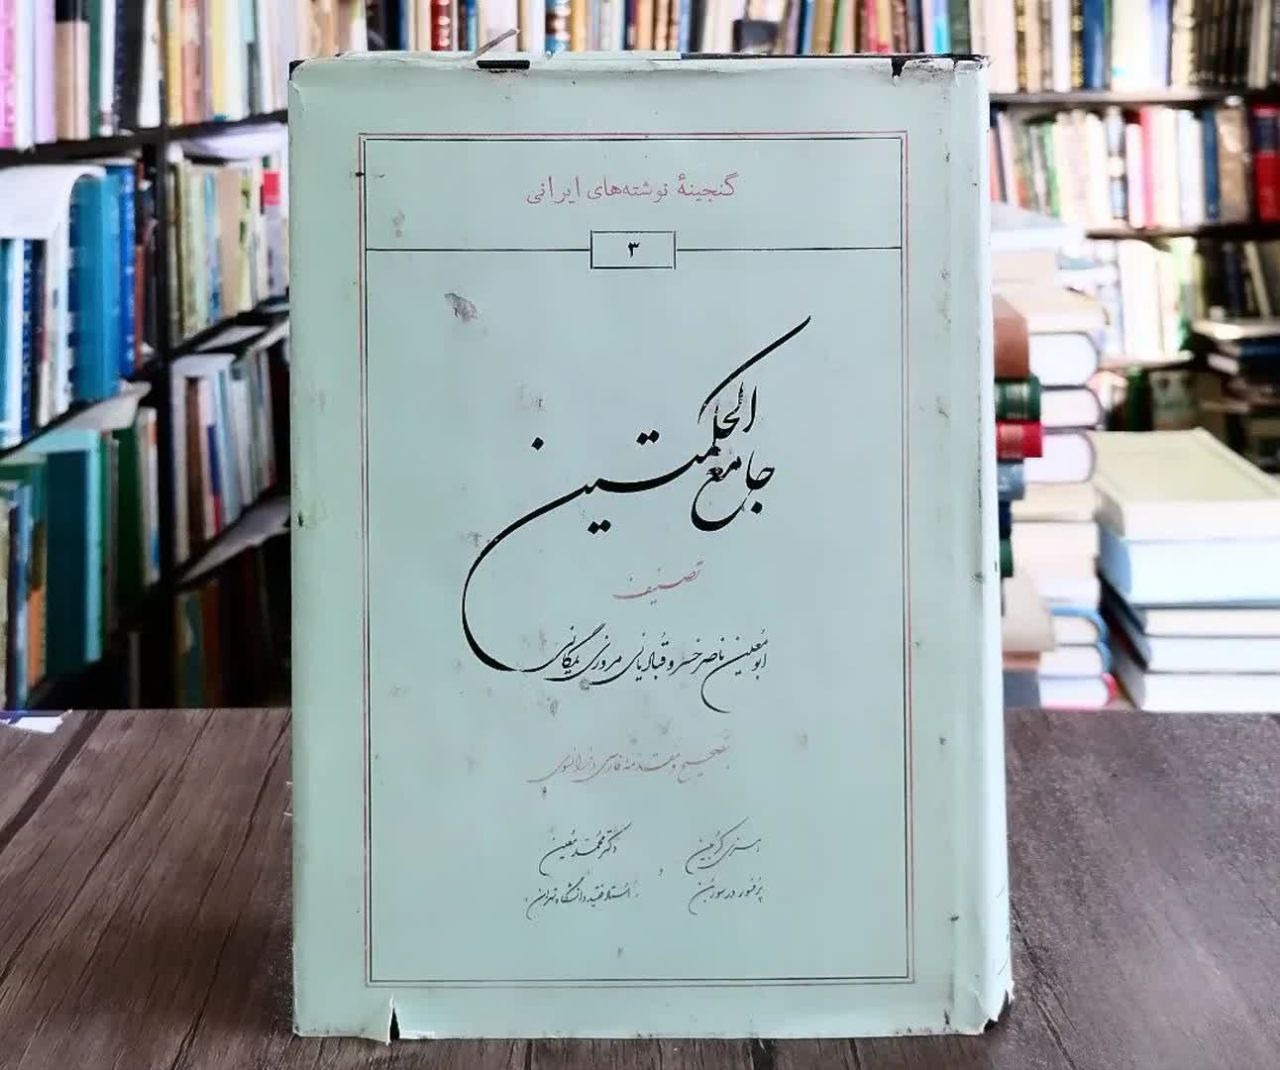 گنجینهٔ نوشته‌های ایرانی
۳
جامع الحکمتین
تصنیف
ابو معین ناصر خسرو قبادیانی مروزی یمگانی
بتصحیح و مقدمهٔ فارسی و فرانسوی
هنری کربین و دکتر محمد معین
پرفسور در سوربن استاد فقید دانشگاه تهران